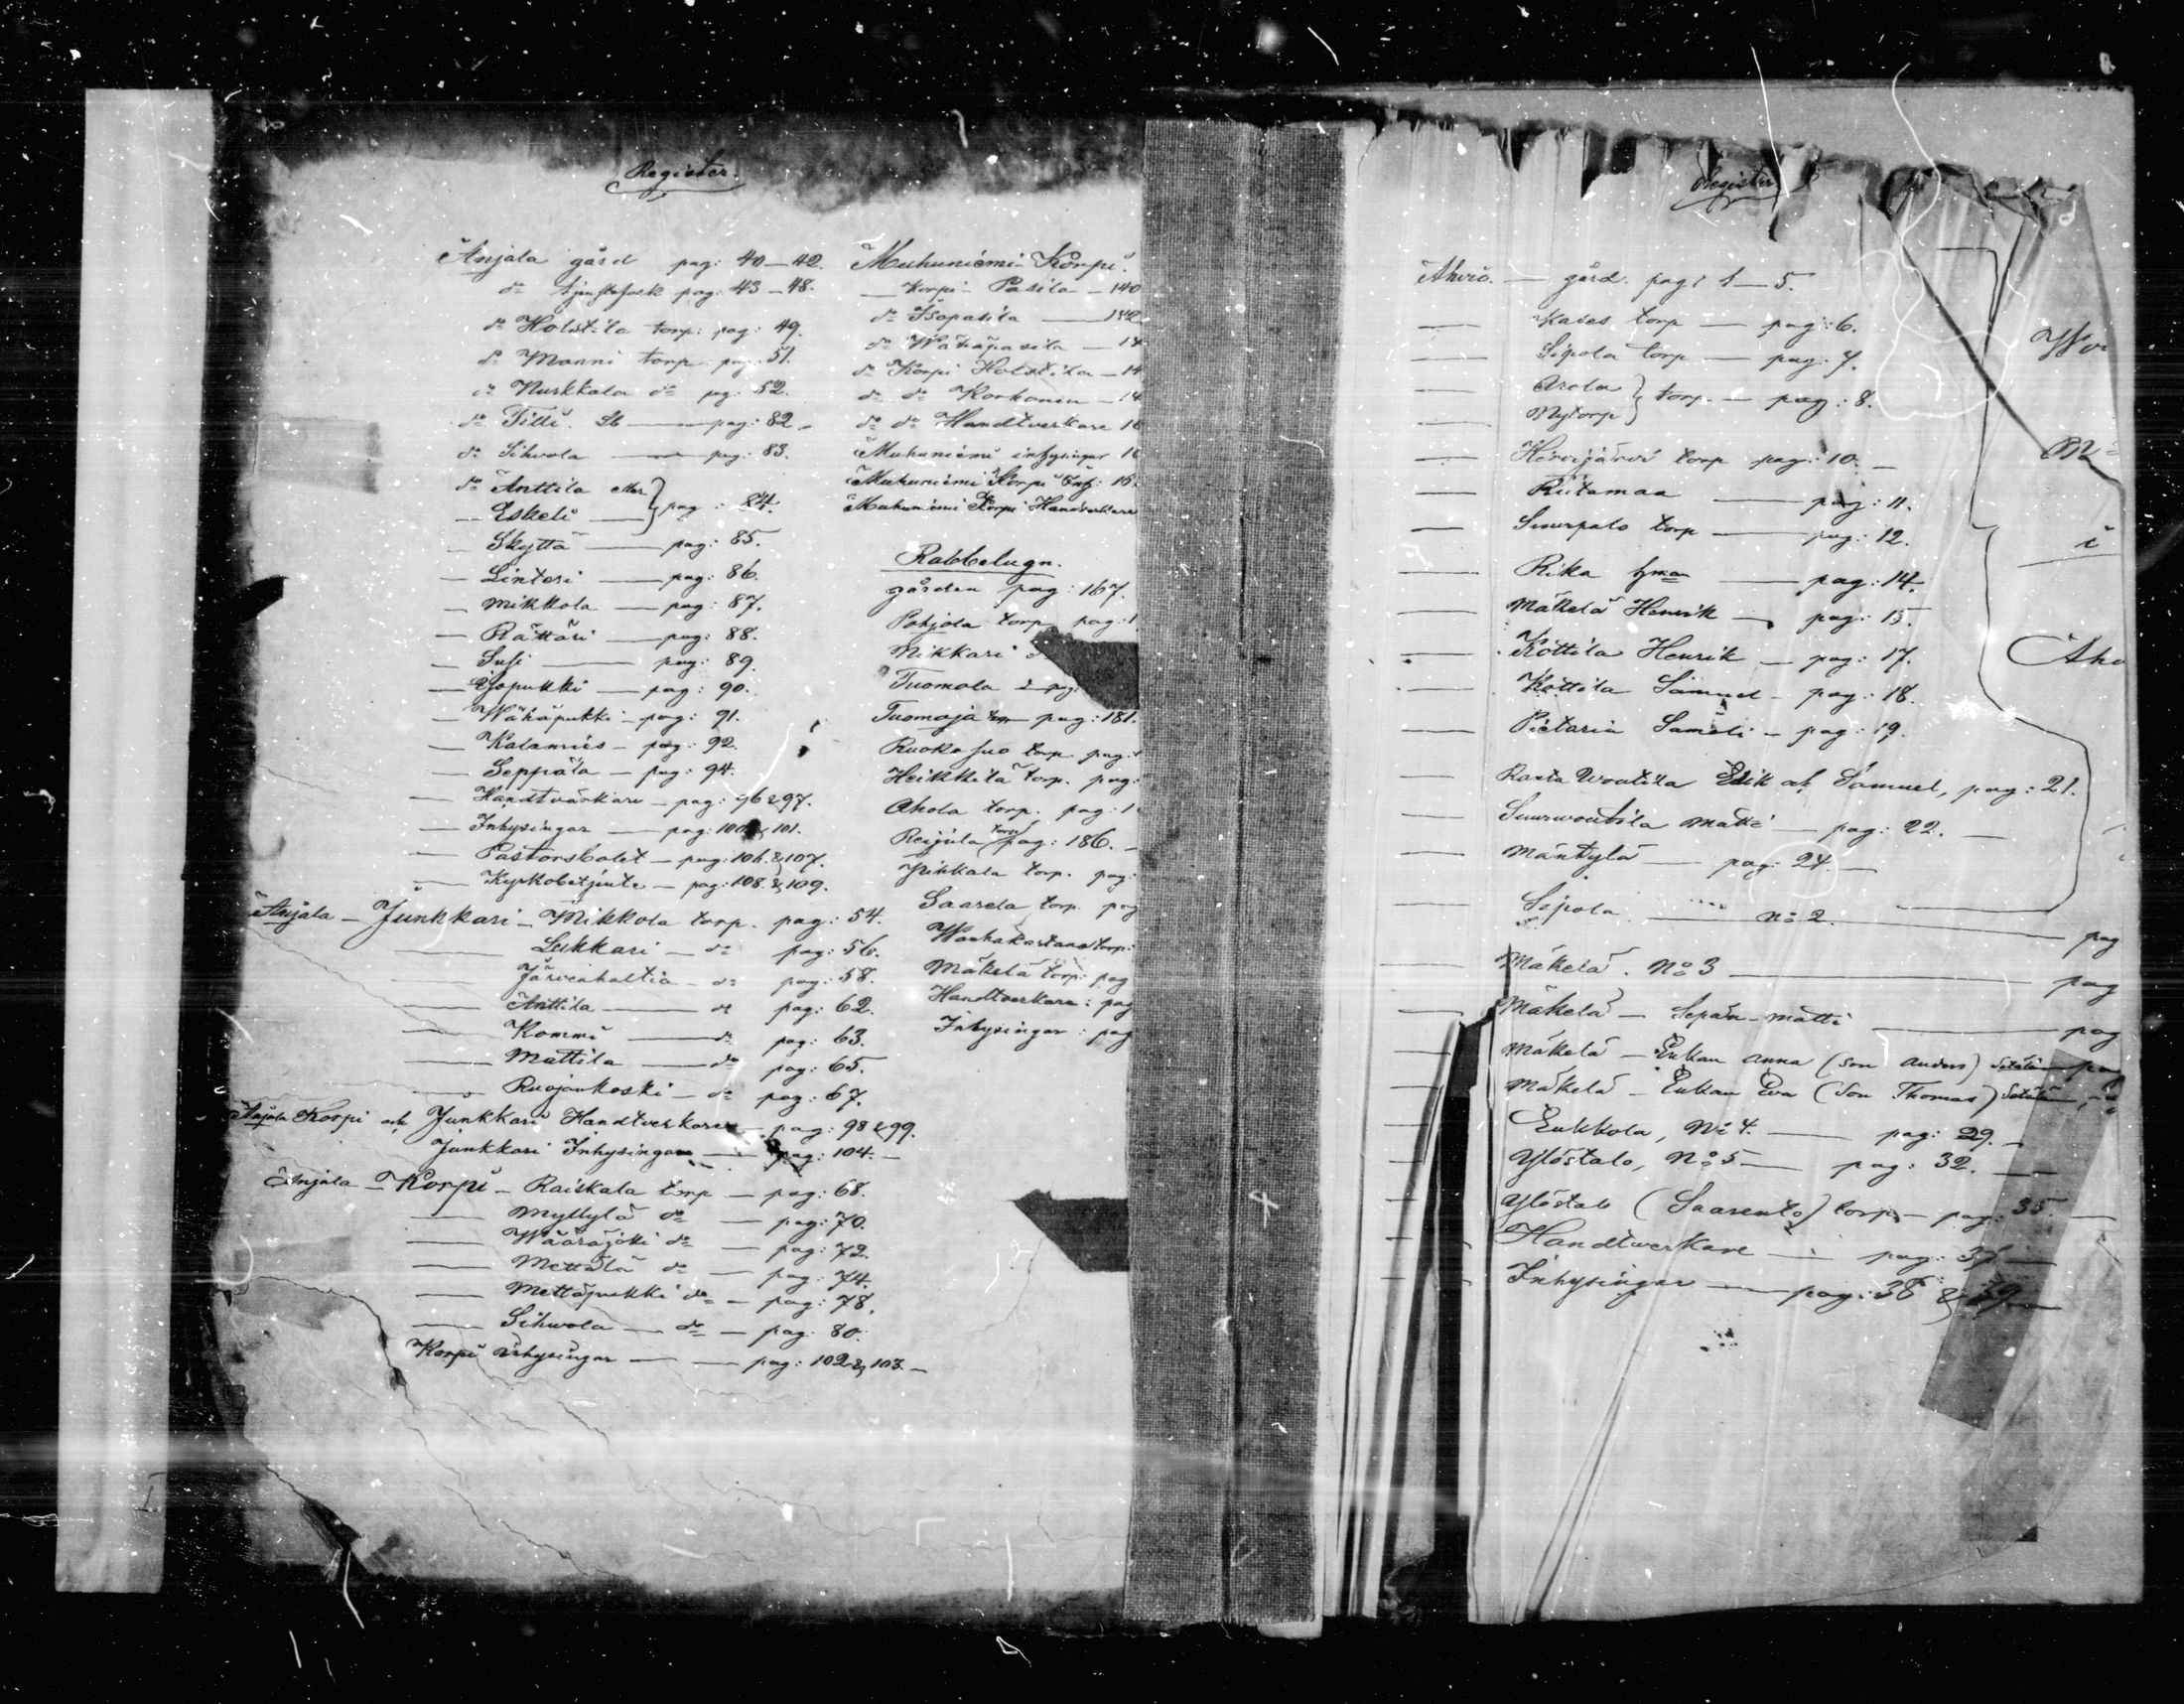 Register.
Anjala gård pag: 40—42.
do tjenstefolk pag: 43—48.
do Holstila torp: pag: 49.
do Monni torp pag: 51.
do Nurkkala do pag: 52.
do Titti. — pag: 82.
do Sihvola — pag: 83.
do Anttila
— Eskeli — } pag: 84.
— Skyttä — pag: 85.
— Linteri — pag: 86.
— Mikkola — pag: 87.
— Rättäri — pag: 88.
— Susi — pag: 89.
— Isopukki — pag: 90.
— Wähäpukki — pag: 91.
— Kalamies — pag: 92.
— Seppälä — pag: 94.
— Handtvärkare — pag: 96 & 97.
— Inhysingar — pag: 100 & 101.
— Pastorsbolet — pag: 106. & 107.
— Kyrkobetjente — pag: 108. & 109.
Anjala — Junkkari — Mikkola torp. pag: 54.
— Lukkari — do pag: 56.
— Järvenhaltia — do pag: 58.
— Anttila — do pag: 62.
— Kommi — do pag: 63.
— Mattila — do pag: 65.
— Ruojankoski — do pag: 67.
Anjala Korpi och Junkkari Handtverkare — pag: 98 & 99.
Junkkari Inhysingar — pag: 104. —
Anjala — Korpi — Raiskala torp — pag: 68.
— Myllylä do — pag: 70.
— Wääräjoki do — pag: 72.
— Mettälä do — pag: 74.
— Mettäpukki do — pag: 78.
— Sihvola — do — pag: 80.
Korpi inhysingar — — pag: 102 & 103. —
Muhuniemi-Korpi.
— Korpi Pasila — 140
do Isopasila — 142
do Wähäpasila — 14
do Korpi Holstila — 14
do do Korhonen — 14
do do Handtverkare 16
Muhuniemi inhysingar 16
Muhuniemi Korpi Inh: 16
Muhuniemi Korpi Handverkare
Rabbelugn.
gården pag: 167.
Pohjola torp pag: 1
Nikkari
Tuomola do pag:
Tuomoja torp pag: 181.
Ruokosuo torp pag:
Heikkilä torp. pag:
Ahola torp. pag: 1
Reijula torp pag: 186. —
Pikkala torp. pag:
Saarela torp. pag
Wanhakartano torp:
Mäkelä torp: pag
Handtverkare: pag
Inhysingar: pag
Register
Ahvio. — gård. pag: 1—5.
— Kales torp — pag: 6.
— Sipola torp — pag: 7.
— Arola
— Nytorp } torp. — pag: 8.
— Hirvijärvi torp pag: 10. —
— Riitamaa — pag: 11.
— Suurpalo torp — pag: 12.
— Rika — pag: 14.
— Mäkelä Henrik — pag: 15.
— Köttilä Henrik — pag: 17.
— Köttilä Samuel — pag: 18.
— Pietaria Sameli — pag: 19.
— Rasta Woutila Erik och Samuel, pag: 21.
— Suurwoutila Matti — pag: 22. —
— Mäntylä — pag: 24. —
— Sipola — No 2. — pag
— Mäkelä. No 3 — pag
— Mäkelä — Sepän-Matti — pag
— Mäkelä — Enkan Anna (son Anders) Setälä — pag
— Mäkelä — Enkan Eva (Son Thomas) Setälä
— Eukkola, No 4. — pag: 29. —
— Ylöstalo, No 5 — pag: 32. —
— Ylöstalo (Saarento) torp — pag: 35. —
— Handtwerkare — pag: 37 —
— Inhysingar — pag: 38 & 39 —